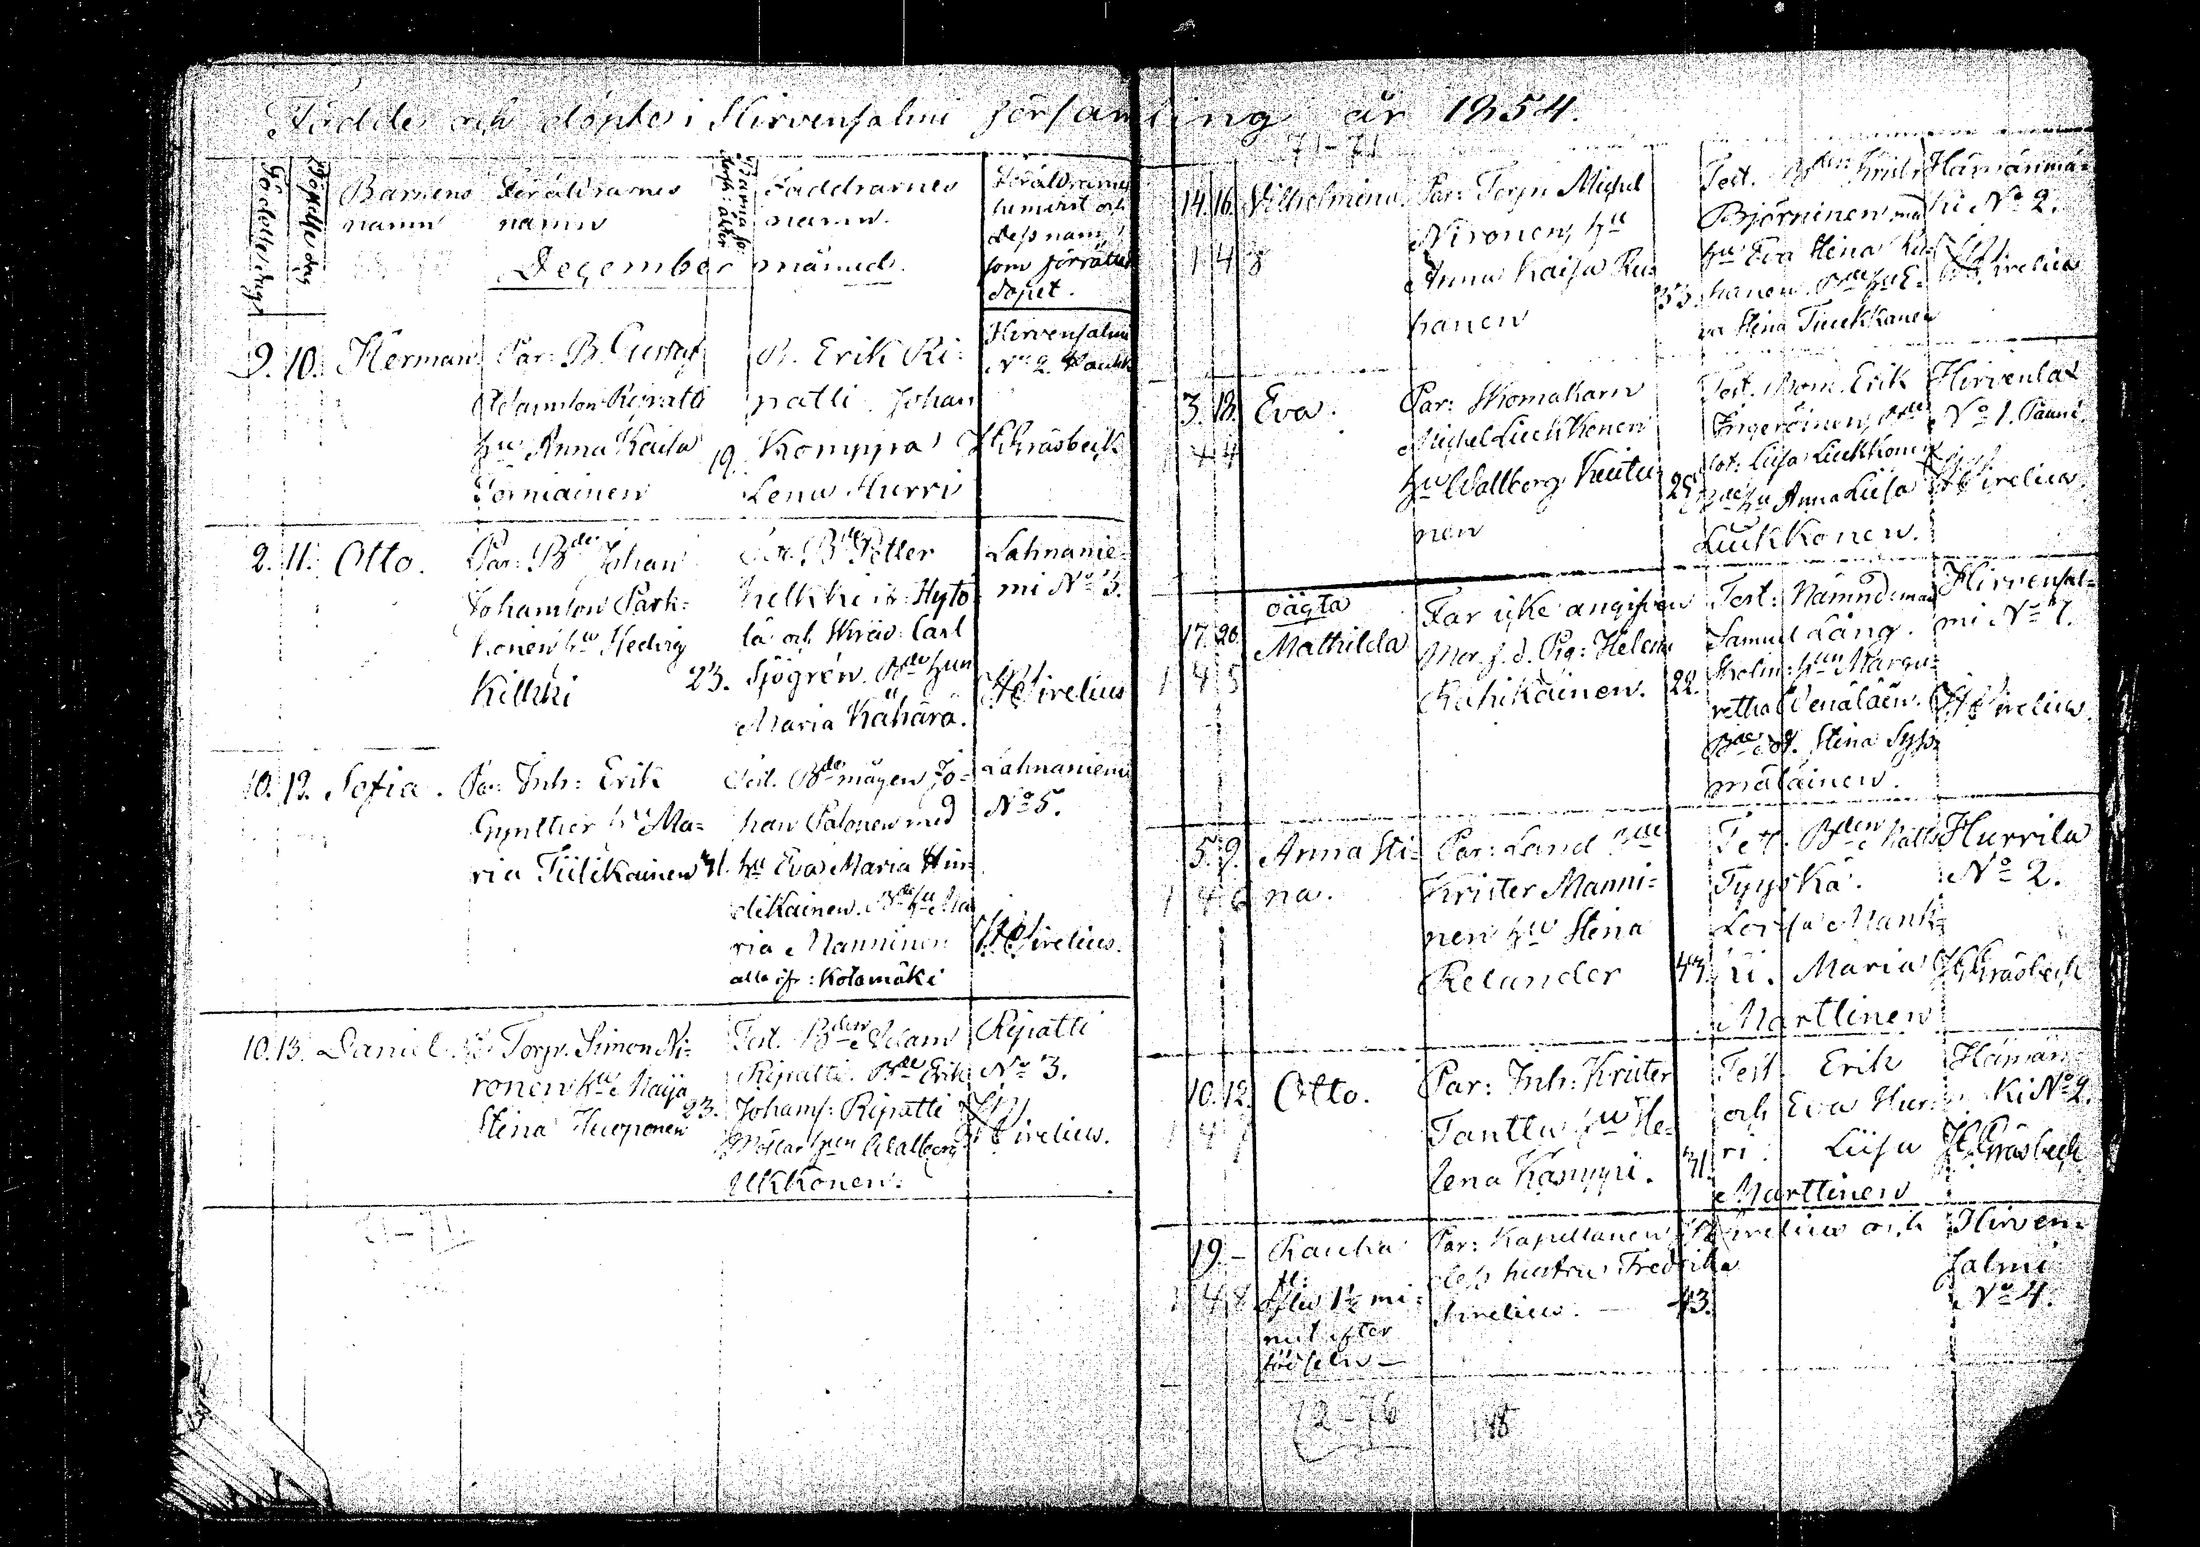 Födde och döpte i Hirvensalmi församling år 1854.
Födelse dag
Döpelse dag
Barnens
namn
Föräldrarnes
namn
Faddrarnes
namn.
Föräldrarnes
hemvist och
dess namn
som förrättat
dopet.
December månad.
9. 10. Herman
Par: B. Gustaf
Adamson Ripatti
hu Anna Kaisa
Torniainen
19.
B. Erik Ri-
patti. Johan
Komppa
Lena Hurri
Hirvensalmi
No 2.
Gråsbeck
2. 11. Otto.
Par: Bde Johan
Johanson Park-
konen hu Hedvig
Kilkki
23.
Bde Petter
Hytö-
lä och Skräd: Carl
Sjögrén. Bde hun
Maria Kähärä.
Lahnanie-
mi No 3.
Sirelius
10. 12. Sofia.
Par: Inh: Erik
Gynther hu Ma-
ria Tiilikainen 41.
Test. Bde mågen Jo-
han Palonen med
hu Eva Maria Hin-
dikainen. Bde hu Ma
ria Manninen
alla ifr: Kotamäki
Lahnaniemi
No 5.
Sirelius.
10. 13. Daniel
Torp. Simon Ni-
ronen hu Maija
Stina Huoponen
23.
Test. Bden Adam
Ripatti. Bde Erik
Johans: Ripatti
hun Walborg
Ukkonen.
Ripatti
No 3.
Sirelius.
71-71
14. 16. Vilhelmina
1 4 3
Par: Torp Michel
Nironen, hu
Anna Kaisa Ru-
hanen
33.
Test. Bden Krist:
Björninen
hu Eva Stina Ru-
hanen. Bde hu E-
va Stina Tuukkanen
Hämänmä-
ki No 2.
Sirelius
3. 18. Eva.
1 4 4
Par: Skomakarn
Michel Liukkonen
hu Walborg Kuitu-
nen
25
Test. Bom. Erik
Ingeröinen, Bde
dot: Liisa Liukkonen
Bde hu Anna Liisa
Liukkonen.
Hirvenla
No 1.
Sirelius
17. 20. oägta
Mathilda
1 4 5
Far icke angifven
Mor f. d. Pig: Helena
Rahikainen. 22.
Test: Nämndeman
Samuel Läng.
Skolm: hun Marga-
retha Venäläin.
Bde dot. Stina Sys-
mäläinen.
Hirvensal-
mi No 7.
Sirelius.
5. 9. Anna Sti-
na.
1 4 6
Par: Land Bde
Krister Manni-
nen hu Stina
Relander
43.
Test. Bden Matts
Tyyskä.
Lovisa Mank-
ki. Maria
Marttinen
Hurrila
No 2.
Gråsbeck
10. 12. Otto.
1 4 7
Par: Inh: Krister
Tanttu hu He-
lena Kämppi. 31.
Test. Erik
och Eva Hur-
ri. Liisa
Marttinen
Hämän-
ki No 2.
Gråsbeck
19. - Rauha
1 4 8
minut efter
födseln
Par: Kapellanen Sirelius och
dess hustru Fredrika
Sirelius. - 43.
Hirven-
salmi
No 4.
71-71
72-76
148